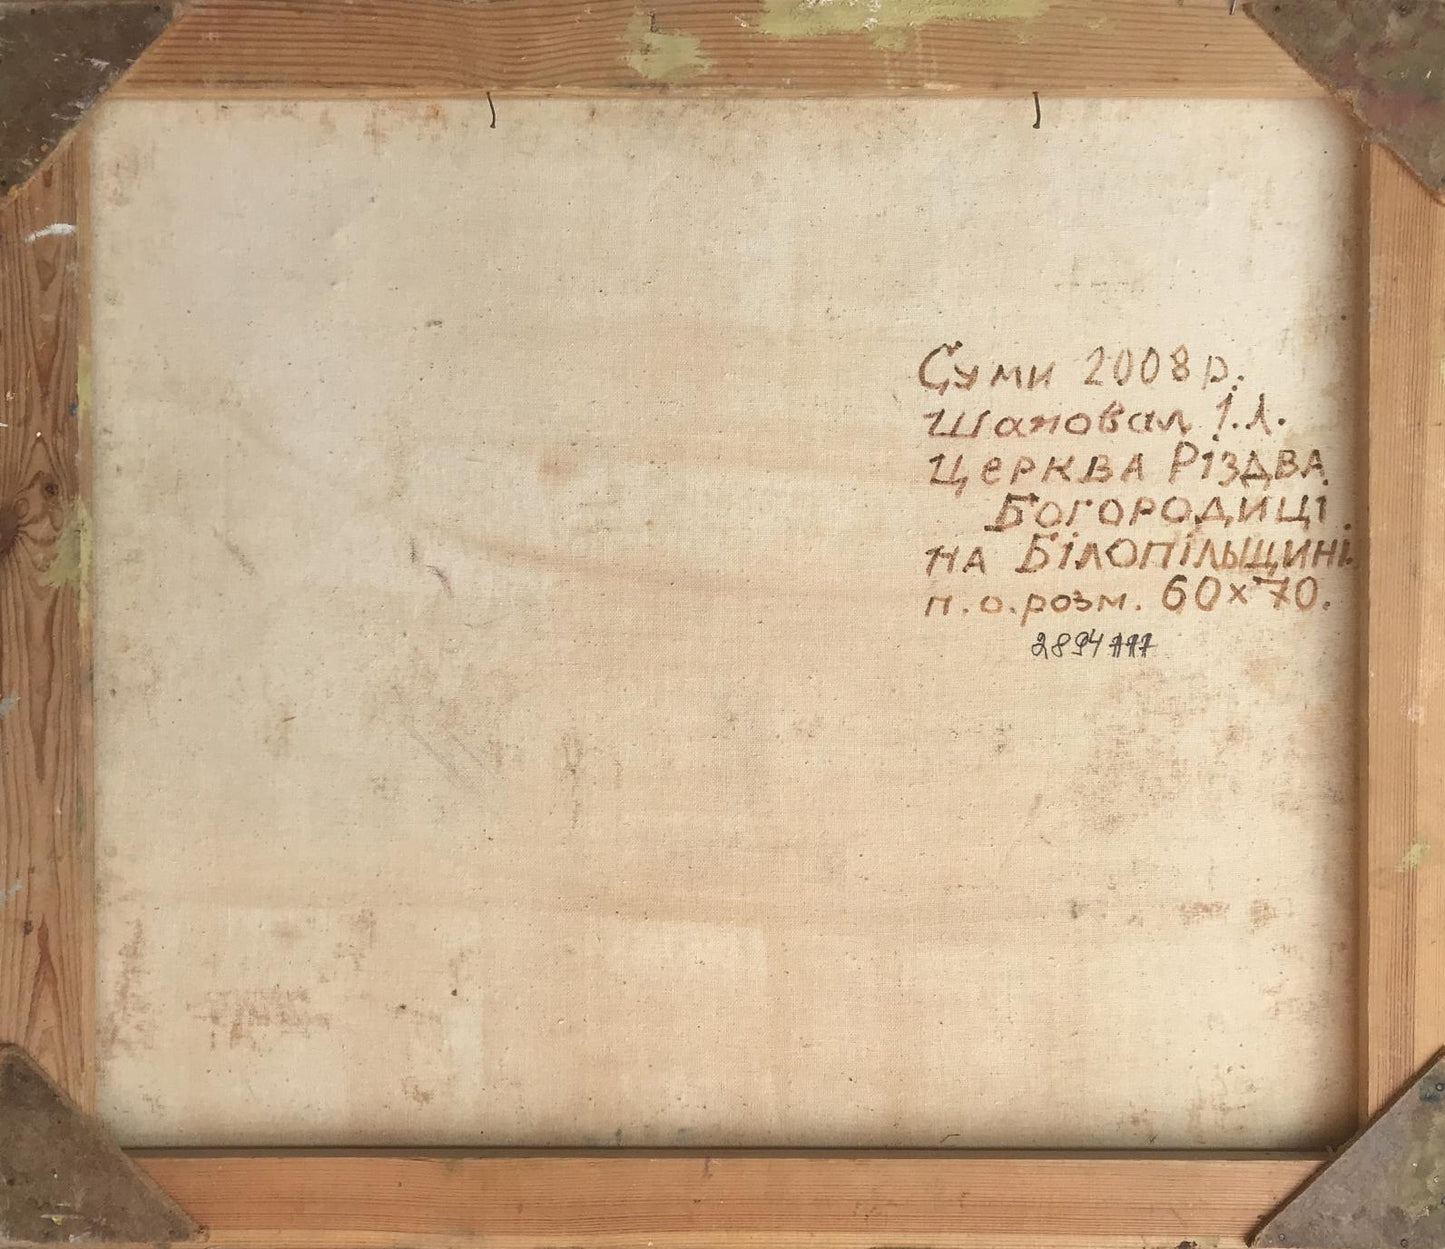 Суми 2008 р.
Шаповал І.Л.
Церква Різдва
Богородиці
на Білопільщині.
п.о. розм. 60х70.
2894